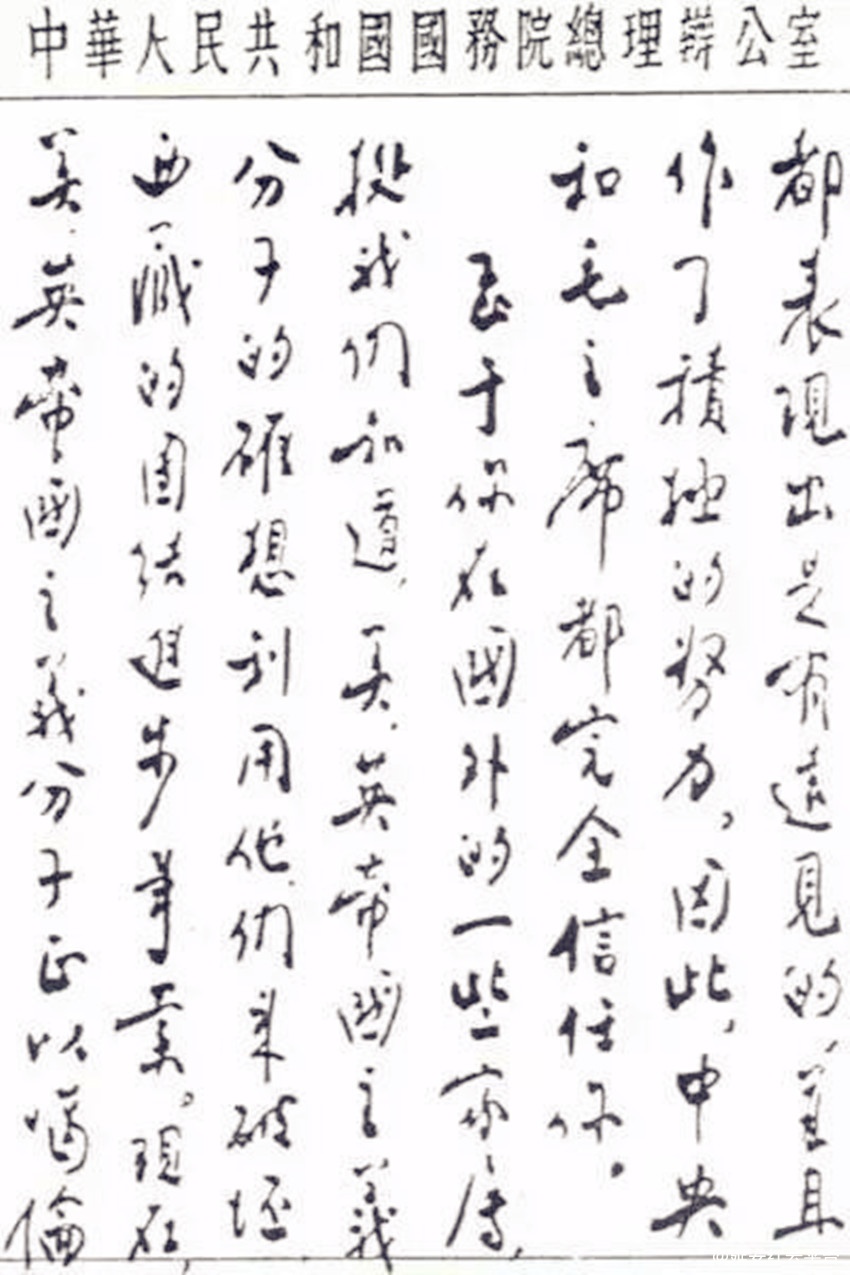 中華人民共和國國務院總理辦公室
都表現出是有遠見的,並且
作了積極的努力,因此,中央
和毛主席都完全信任你。
至于你在國外的一些家属,
從我們知道,美、英帝國主義
分子的確想利用他们来破坏
西藏的团结進步事業。現在,
美、英帝國主義分子正以噶倫